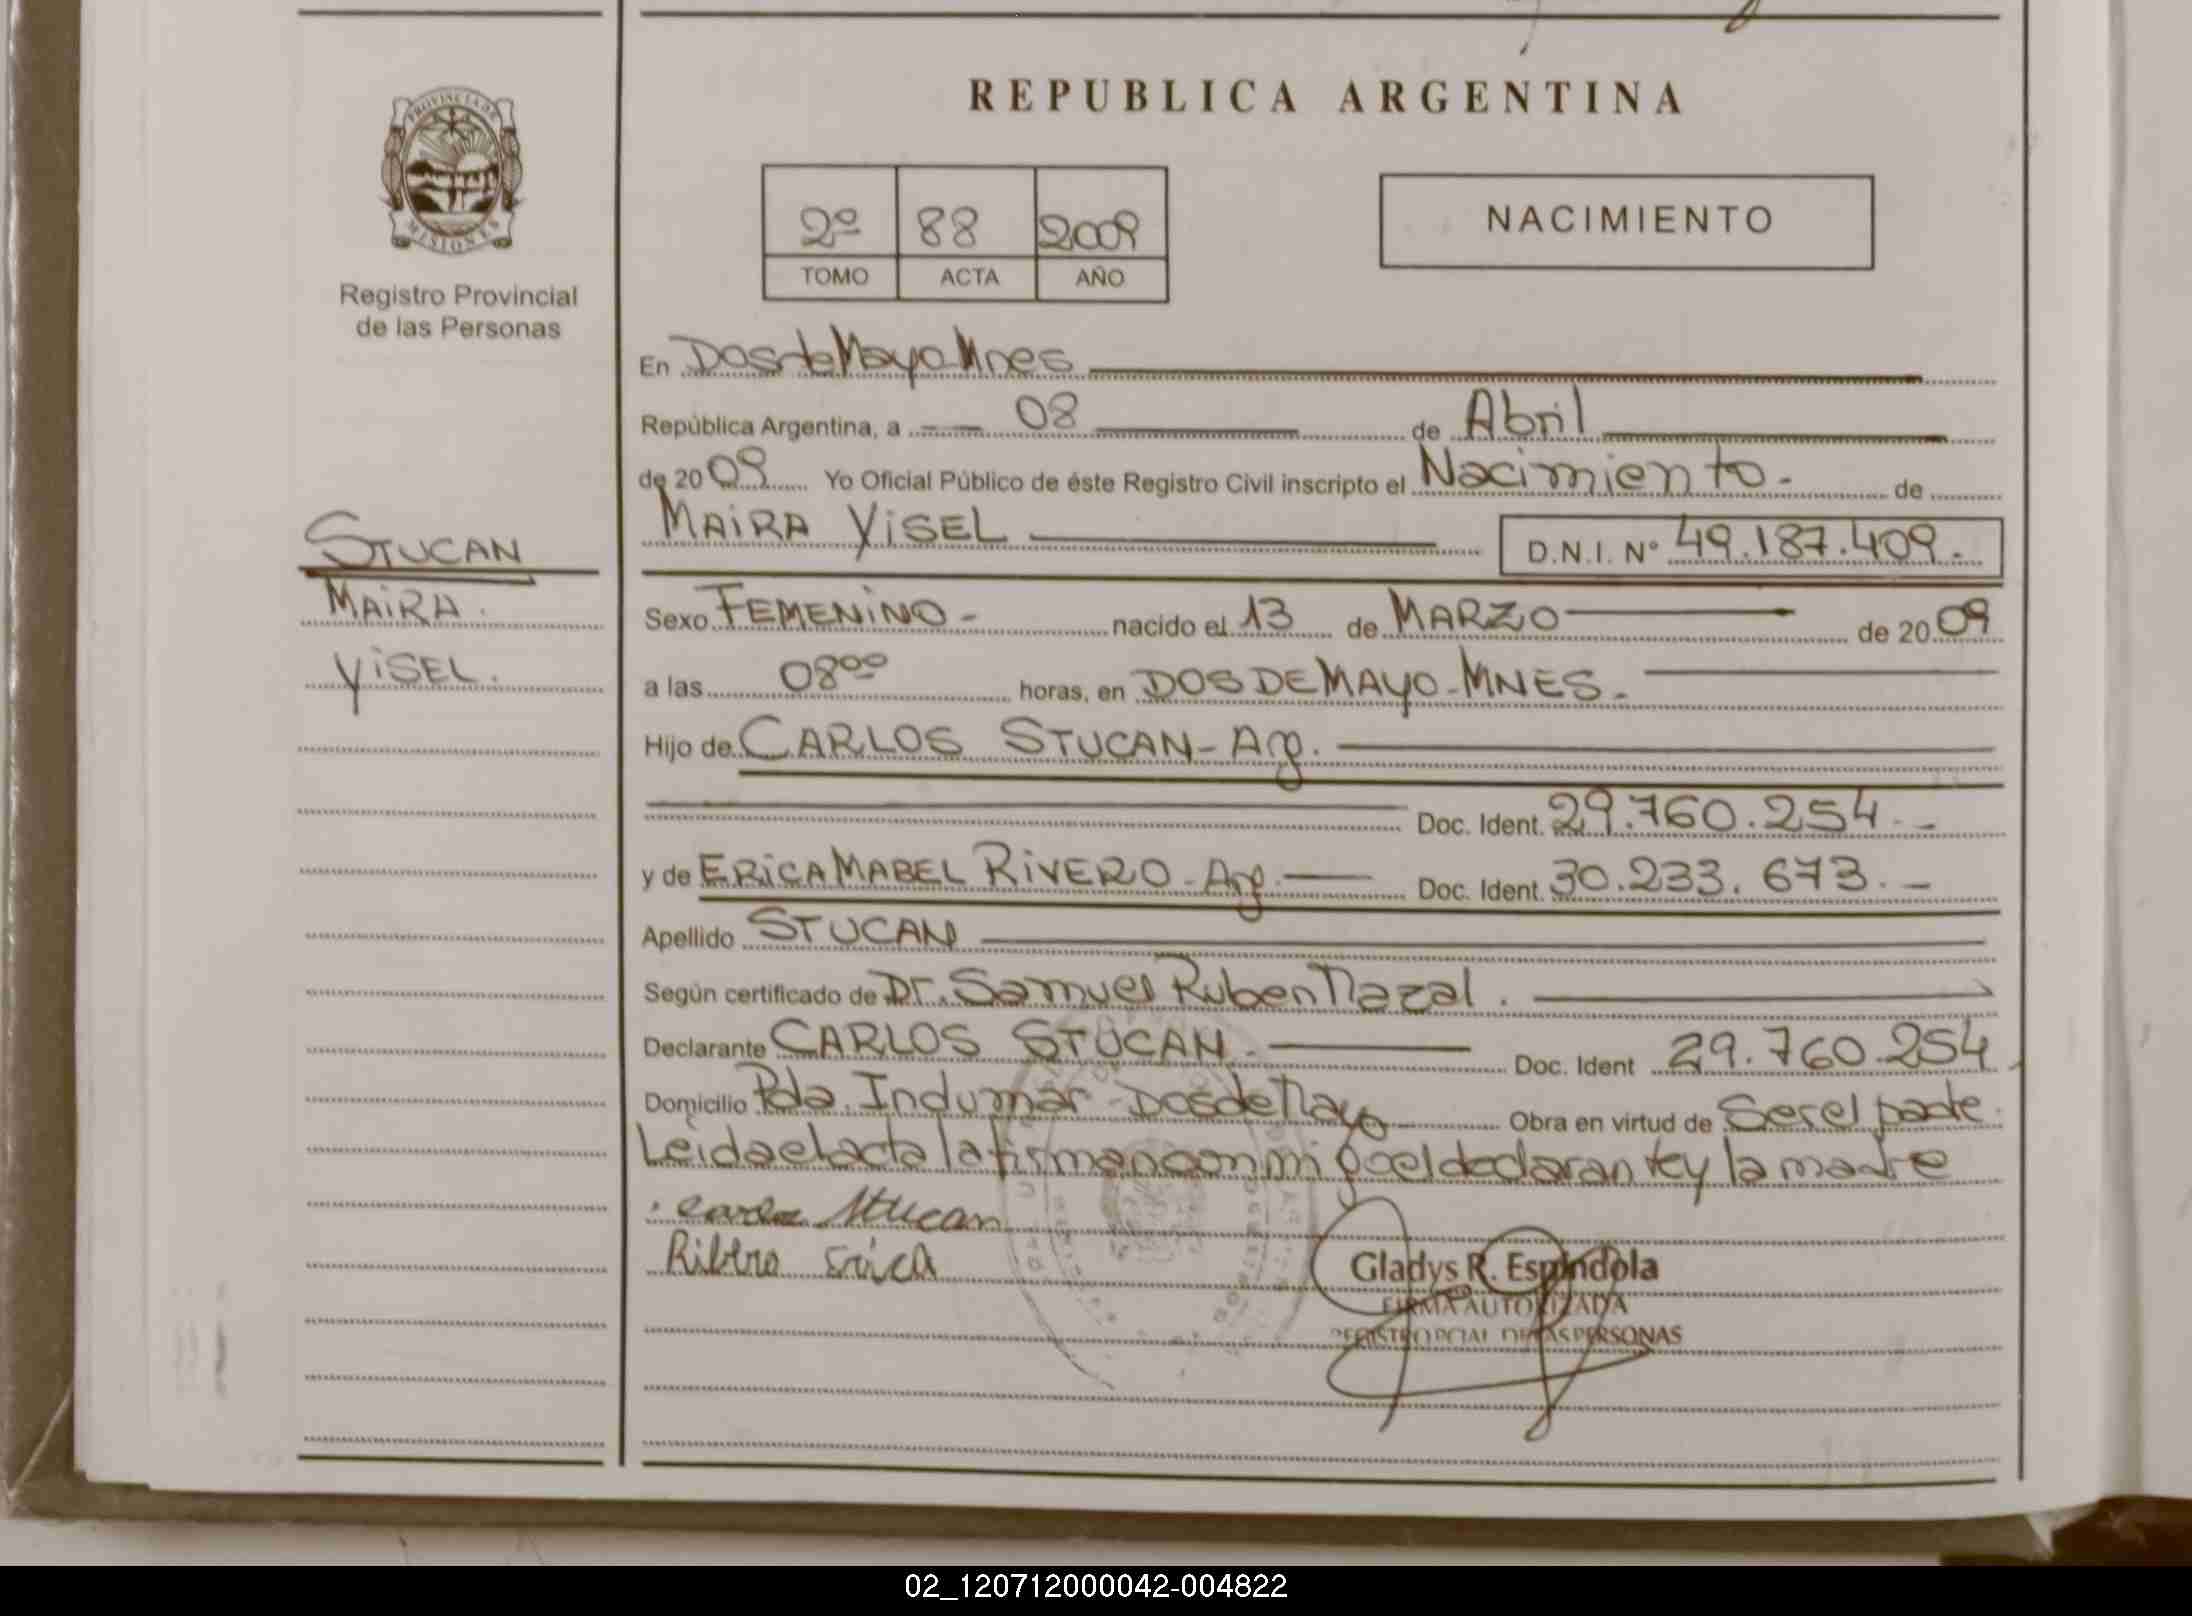 REPUBLICA ARGENTINA
PROVINCIA DE
MISIONES
Registro Provincial
de las Personas
2º 88 2009
TOMO ACTA AÑO
NACIMIENTO
En Dos de Mayo Mnes
República Argentina, a 08 de Abril
de 2009 Yo Oficial Público de éste Registro Civil inscripto el Nacimiento- de
STUCAN
MAIRA.
YISEL.
MAIRA YISEL D.N.I. Nº 49.187.409.-
Sexo FEMENINO- nacido el 13 de MARZO de 2009
a las 08ºº horas, en DOS DE MAYO-MNES.-
Hijo de CARLOS STUCAN-Arg.
Doc. Ident. 29.760.254.-
y de ERICA MABEL RIVERO-Arg.- Doc. Ident. 30.233.673.-
Apellido STUCAN
Según certificado de Dr. Samuel Ruben Nazal.
Declarante CARLOS STUCAN.- Doc. Ident 29.760.254
Domicilio Pda. Indumar-Dos de Mayo Obra en virtud de Ser el padre.
Leida el acta la firman conmigo el declarante y la madre
Stucan
Erica
Gladys R. Espindola
FIRMA AUTORIZADA
REGISTRO PCIAL DE LAS PERSONAS
02_120712000042-004822